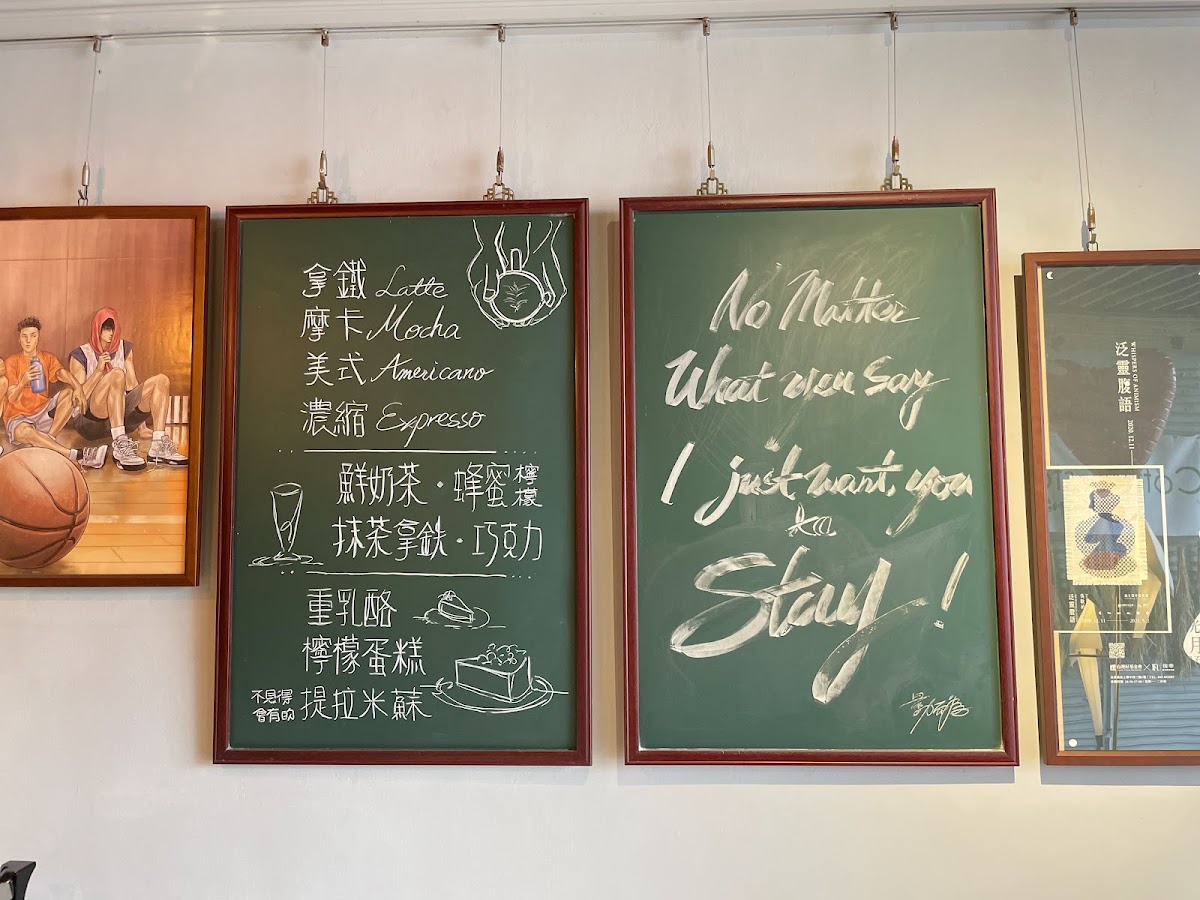 拿鐵 Latte
摩卡 Mocha
美式 Americano
濃縮 Expresso
鮮奶茶・蜂蜜檸檬
抹茶拿鐵・巧克力
重乳酪
檸檬蛋糕
不見得會有的 提拉米蘇
No Matter
What you Say
I just want, you
to
Stay!
泛靈腹語
WHISPERS OF ANIMISM
2020.12.11